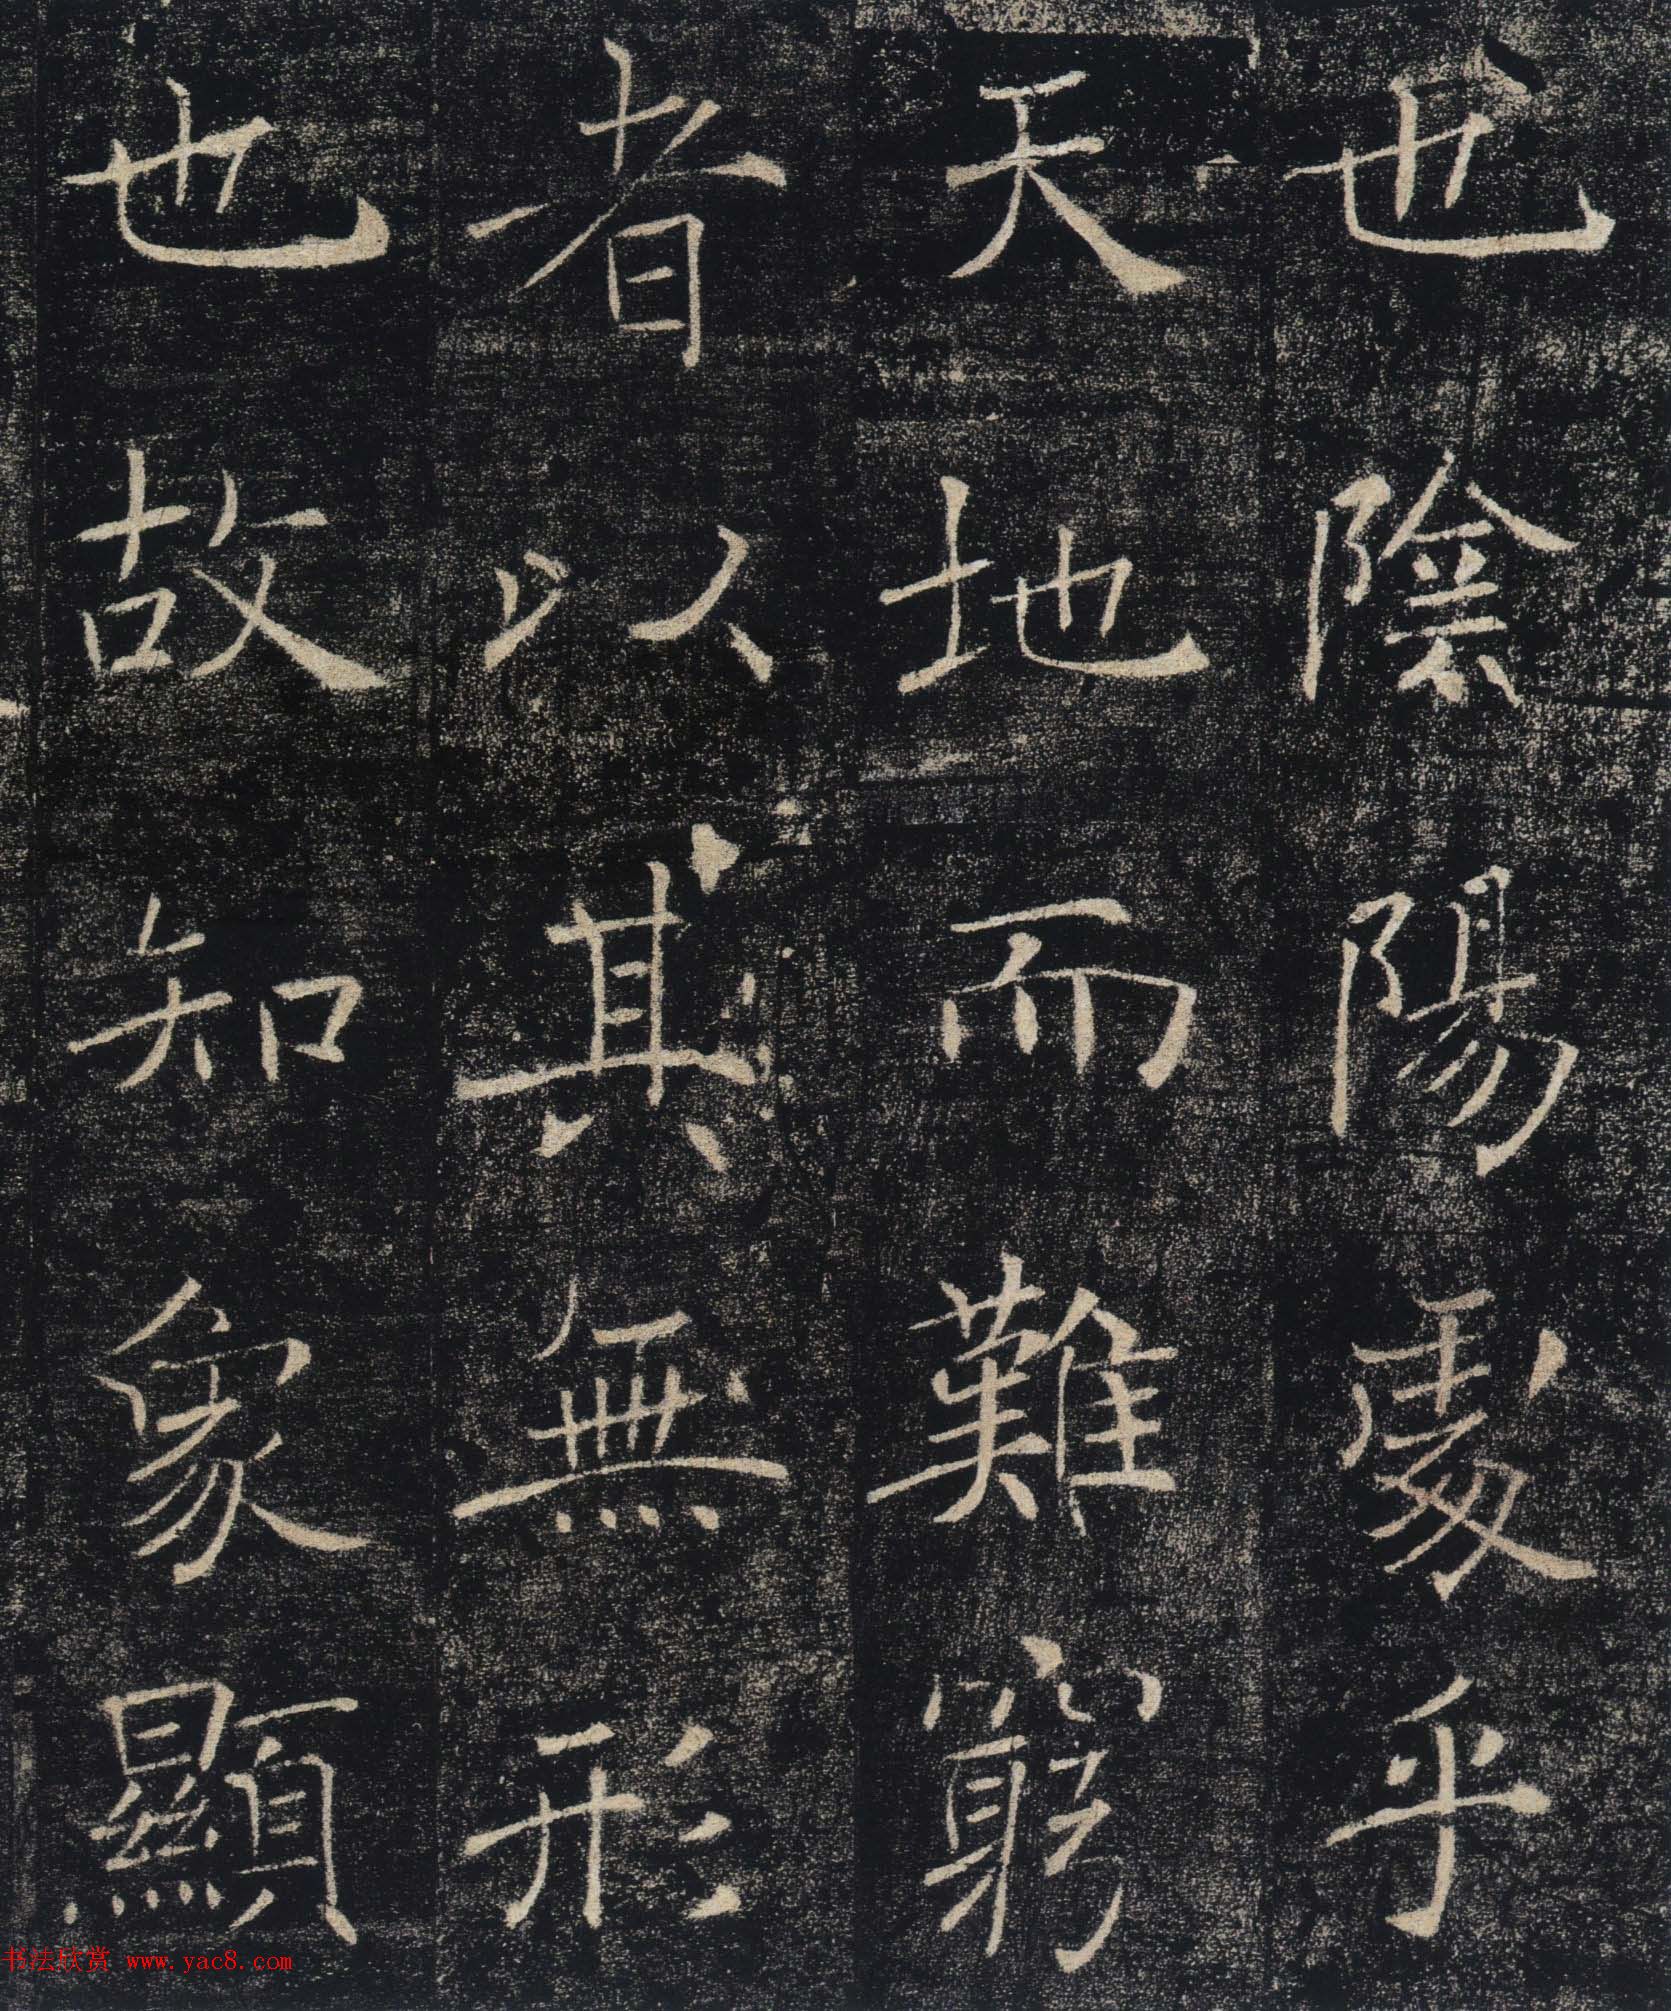 也陰陽處乎
天地而難窮
者以其無形
也故知象顯
书法欣赏 www.yac8.com